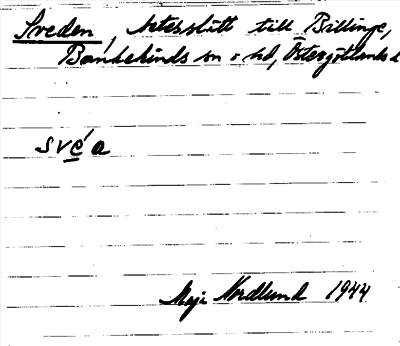 Sveden, betesslätt till Billinge,
Bankekinds sn o hd, Östergötlands l.
svéa
Maja Nordlund 1944